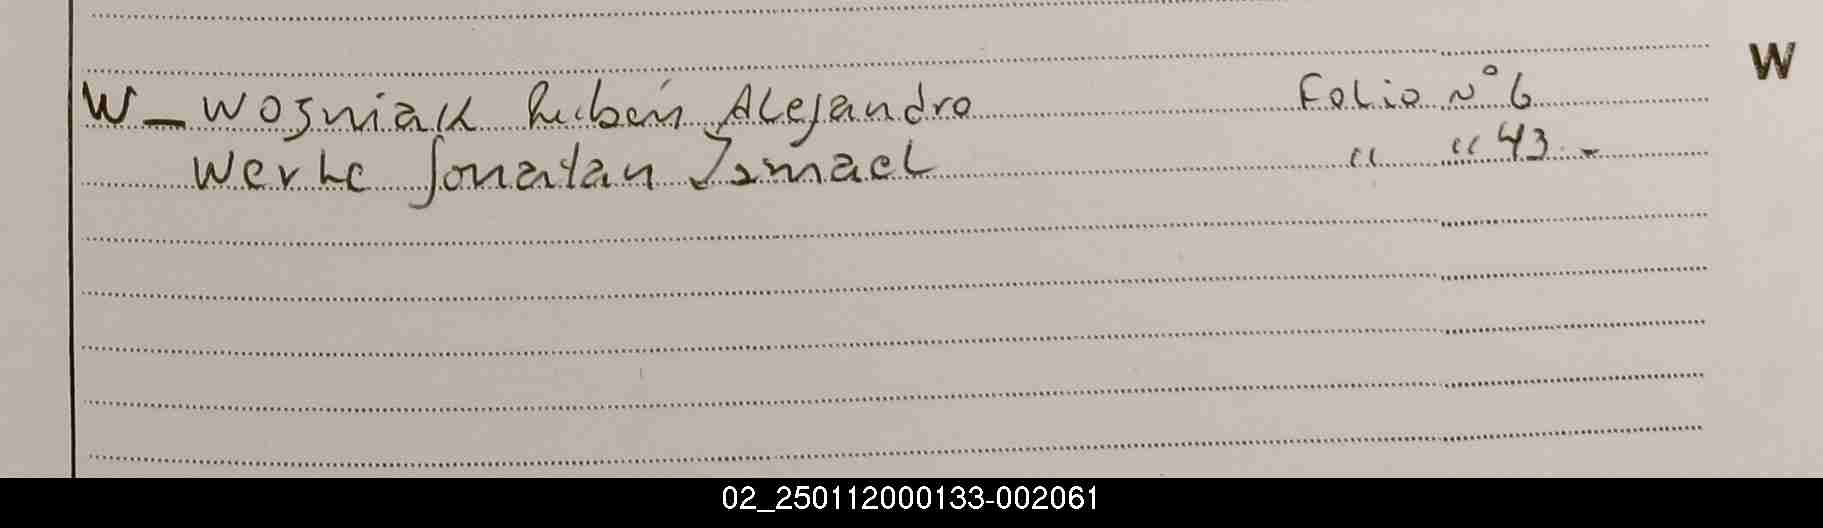 W
W_ Wosniak Rubén Alejandro Folio N° 6
Werle Jonatan Ismael " " 43.-
02_250112000133-002061